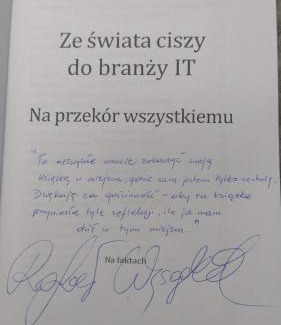 Ze świata ciszy
do branży IT
Na przekór wszystkiemu
"To niezwykłe uczucie zobaczyć moją
książkę w miejscu, gdzie sam jestem tylko
Dziękuję za gościnność – oby ta książka
przyniosła tyle refleksji, ile ja mam
dziś w tym miejscu."
Na faktach
Rafał